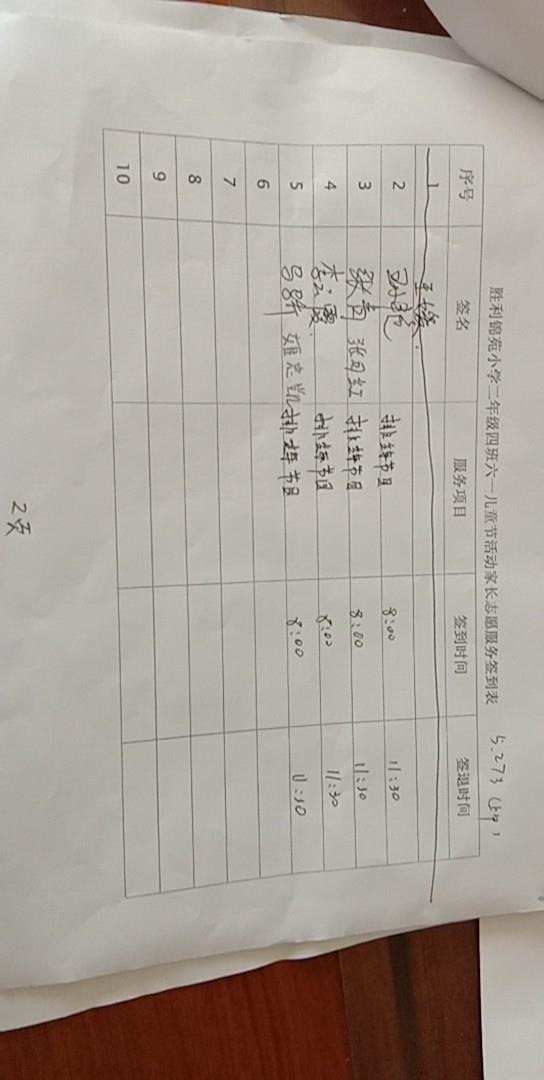 胜利锦苑小学二年级四班六一儿童节活动家长志愿服务签到表 5.27
序号 签名 服务项目 签到时间 签退时间
1 王
2 排练节目 8:00 11:30
3 张 张月红 排练节目 8:00 11:30
4 李 霞 排练节目 8:00 11:30
5 马 姬志凯 排练节目 8:00 11:30
6
7
8
9
10
2页